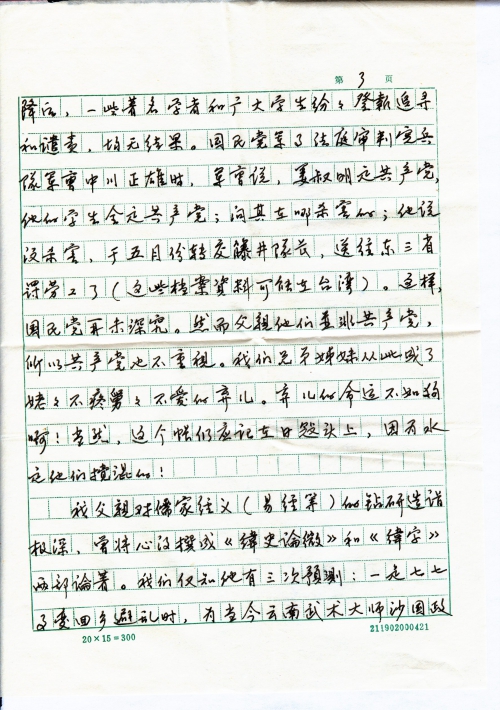 第 3 页
降后，一些著名学者和广大学生纷々登報追寻
和谴责，均无结果。国民党军事法庭审判宪兵
隊军曹中川正雄时，军曹说，姜叔明是共产党，
他的学生全是共产党；问其在哪杀害的；他说
没杀害，于五月份转交籐井隊长，送往东三省
谔劳工了（这些档案資料可能在台湾）。这样，
国民党再未深究。然而父親他们并非共产党，
所以共产党也不重視。我们兄弟姊妹从此成了
姥々不疼舅々不爱的弃儿。弃儿的命运不如狗
啊！当然，这个帐仍应记在日冦头上，因为水
是他们搅混的！
我父親对儒家经义（易经等）的钻研造诣
极深，曾将心得撰成《緯史論微》和《緯字》
两部論著。我们仅知他有三次预測：一是七七
事变回乡避乱时，为当今云南武术大师沙国政
20×15=300
211902000421